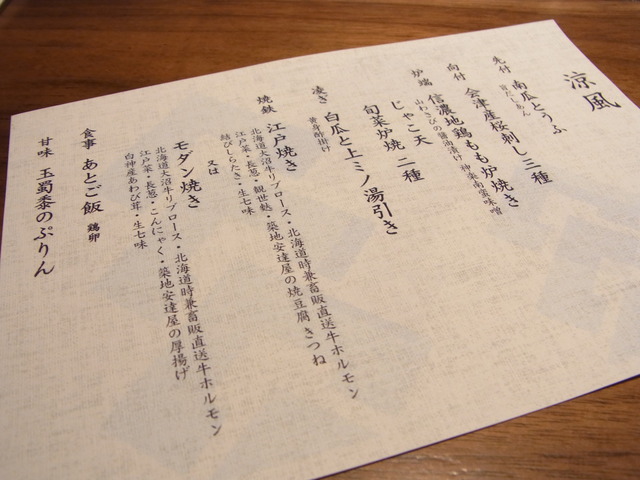 涼風
先付 南瓜とうふ
旨だしあん
向付 会津産桜刺し三種
炉端 信濃地鶏もも炉焼き
山わさびの醤油漬け 神楽南蛮味噌
じゃこ天
旬菜炉焼 二種
凌ぎ 白瓜と上ミノ湯引き
黄身酢掛け
焼鉄 江戸焼き
北海道大沼牛リブロース・北海道時兼畜販直送牛ホルモン
江戸菜・長葱・観世麩・築地安達屋の焼豆腐 きつね
結びしらたき・生七味
又は
モダン焼き
北海道大沼牛リブロース・北海道時兼畜販直送牛ホルモン
江戸菜・長葱・こんにゃく・築地安達屋の厚揚げ
白神産あわび茸・生七味
食事 あとご飯 鶏卵
甘味 玉蜀黍のぷりん